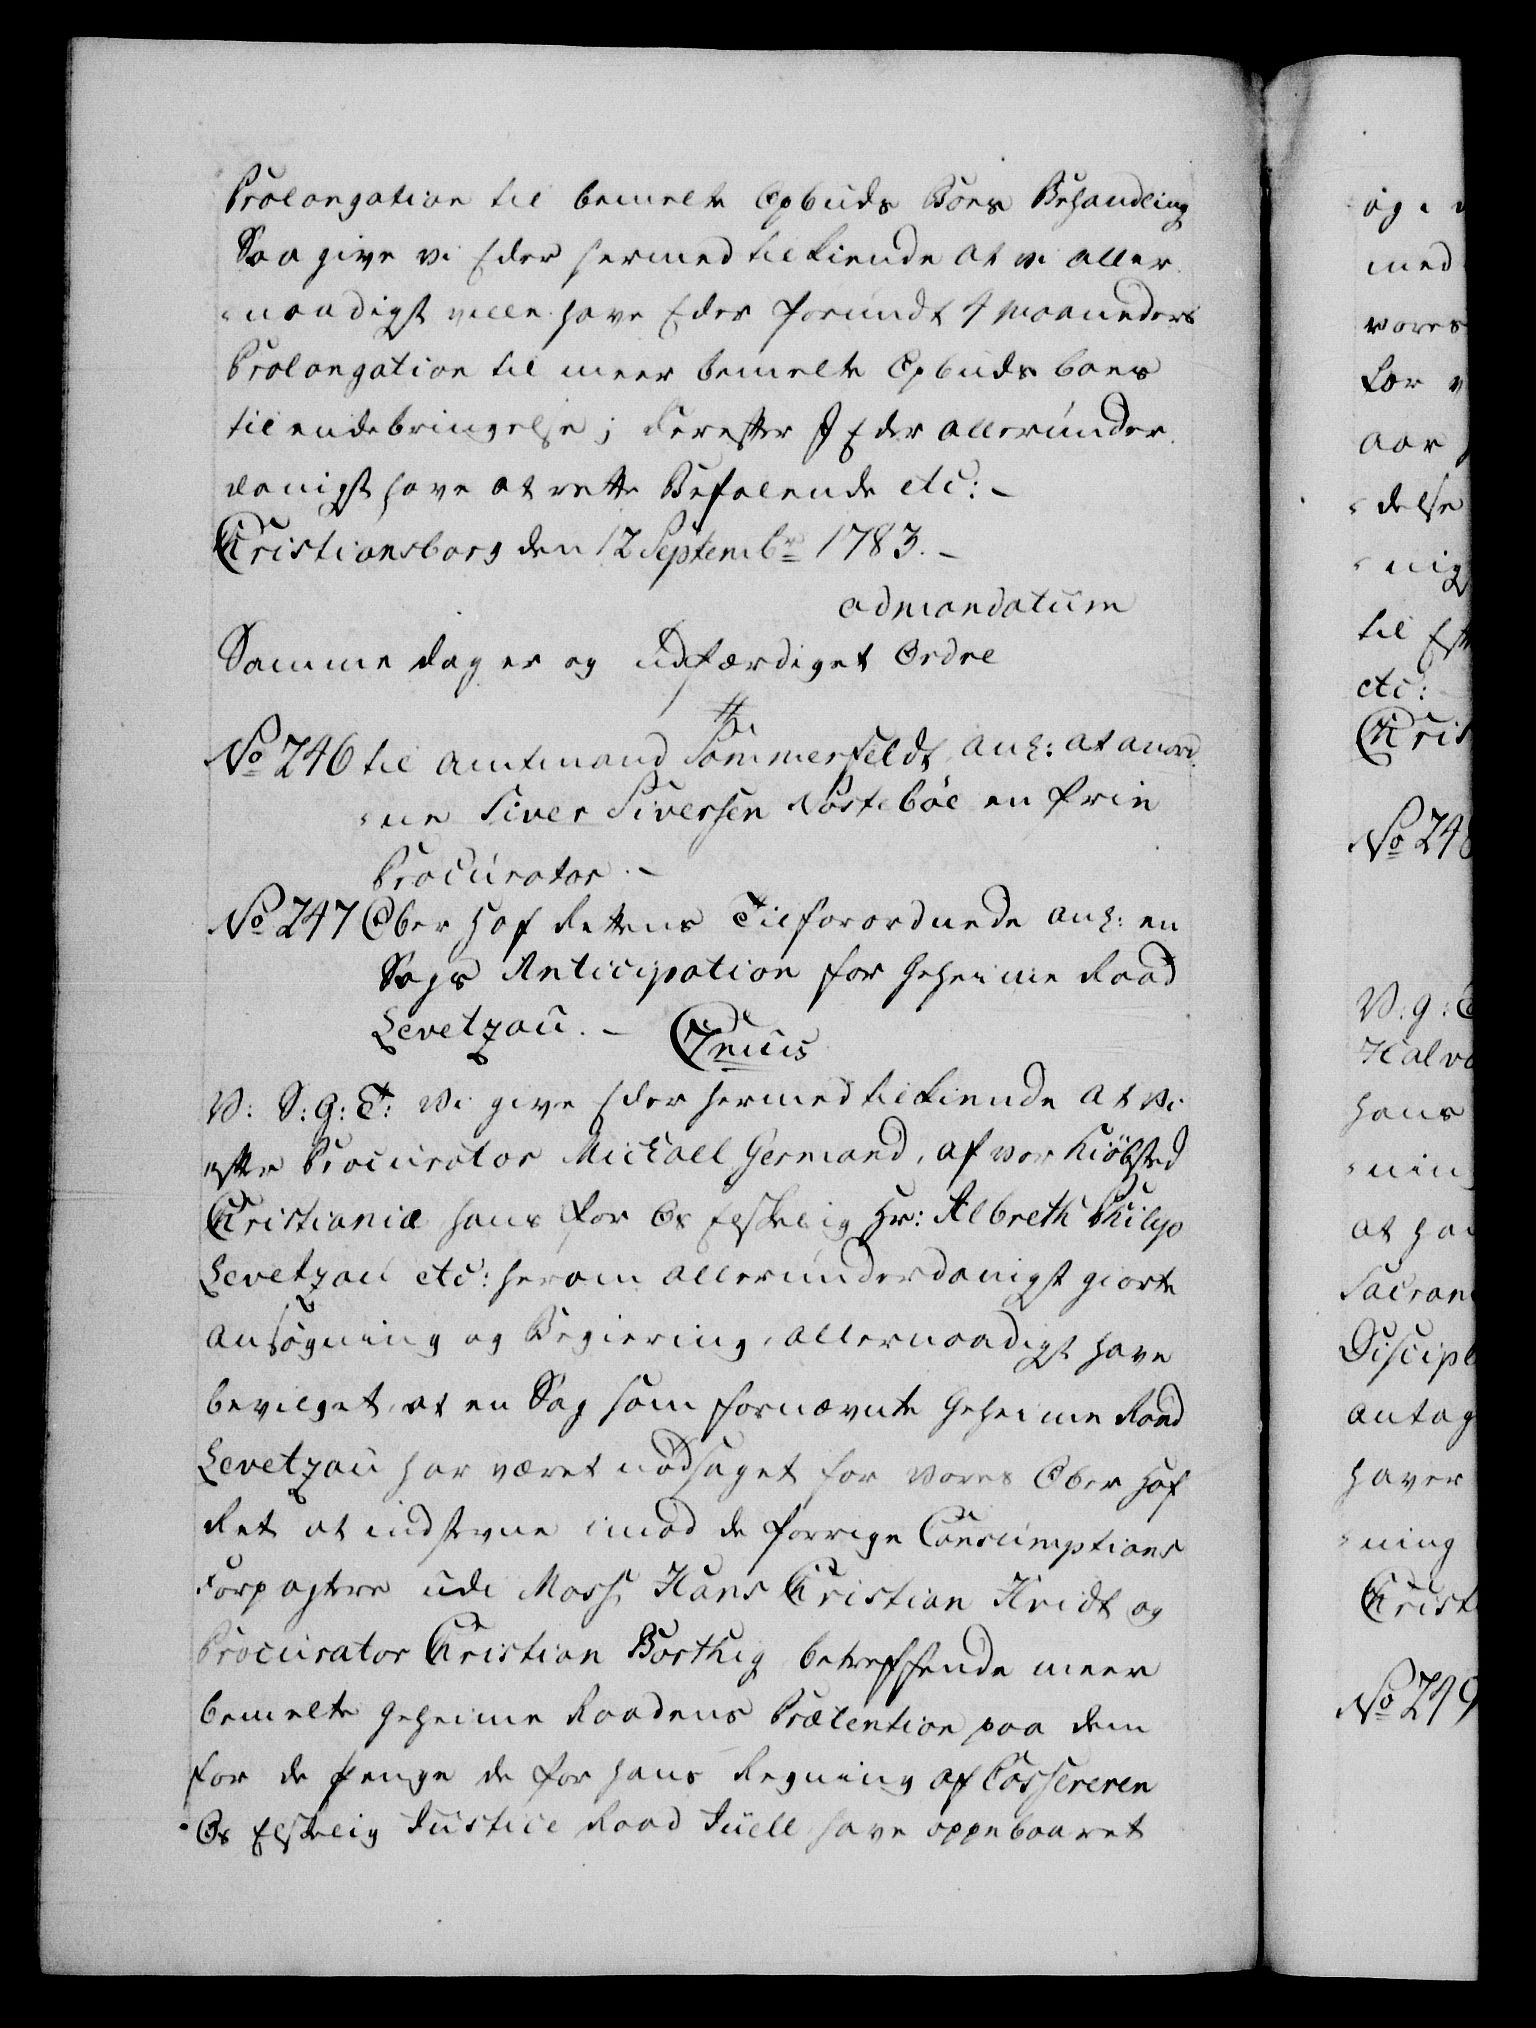 Prolongation til bemelte Opbuds Boes Behandling
Saa give vi Eder hermed tilkiende at vi aller
-naadigst ville have Eder forundt 4 Maaneders
Prolongation til meer bemelte Opbuds boes
tilendebringelse; derefter I Eder allerunder
danigst have at rette Befalende etc: -
Christiansborg den 12 Septembr 1783. -
ad mandatum
Samme dag er og udfærdiget Ordre
No 246 til Amtmand Sommerfeldt anl: at anord
-ne Siver Siversen Rostebøe en frie
Procurator. -
No 247 Ober Hof Rettens Tilforordnede anl: en
Sags Anticipation for Geheime Raad
Levetzau. -
Cnuus
V: S: G: T: Vi give Eder hermed tilkiende at Vi
efter Procurator Michael Germand, af vor Kiøbsted
Christiania hans for Os Elskelig Hr: Albreth Philip
Levetzau etc: herom allerunderdanigst giorte
Ansøgning og Begiering, allernaadigst have
bevilget, at en Sag som fornævnte Geheime Raad
Levetzau har været nødsaget for vores Ober Hof
Ret at indstevne imod de forrige Consumptions
Forpagtere udi Moss, Hans Christian Hvidt og
Procurator Christian Borthig betreffende meer
bemelte Geheime Raadens Prætention paa dem
for de Penge de for hans Regning af Cassereren
Os Elskelig Justice Raad Juell have oppebaaret
og i
med
vores
for
aar
-delse
-nig
til
etc:
Chris
No 248
V: G:
Halvo
hans
-nin
at ha
Sacram
Discipl
antag
haver
-ning
Christ
No 249